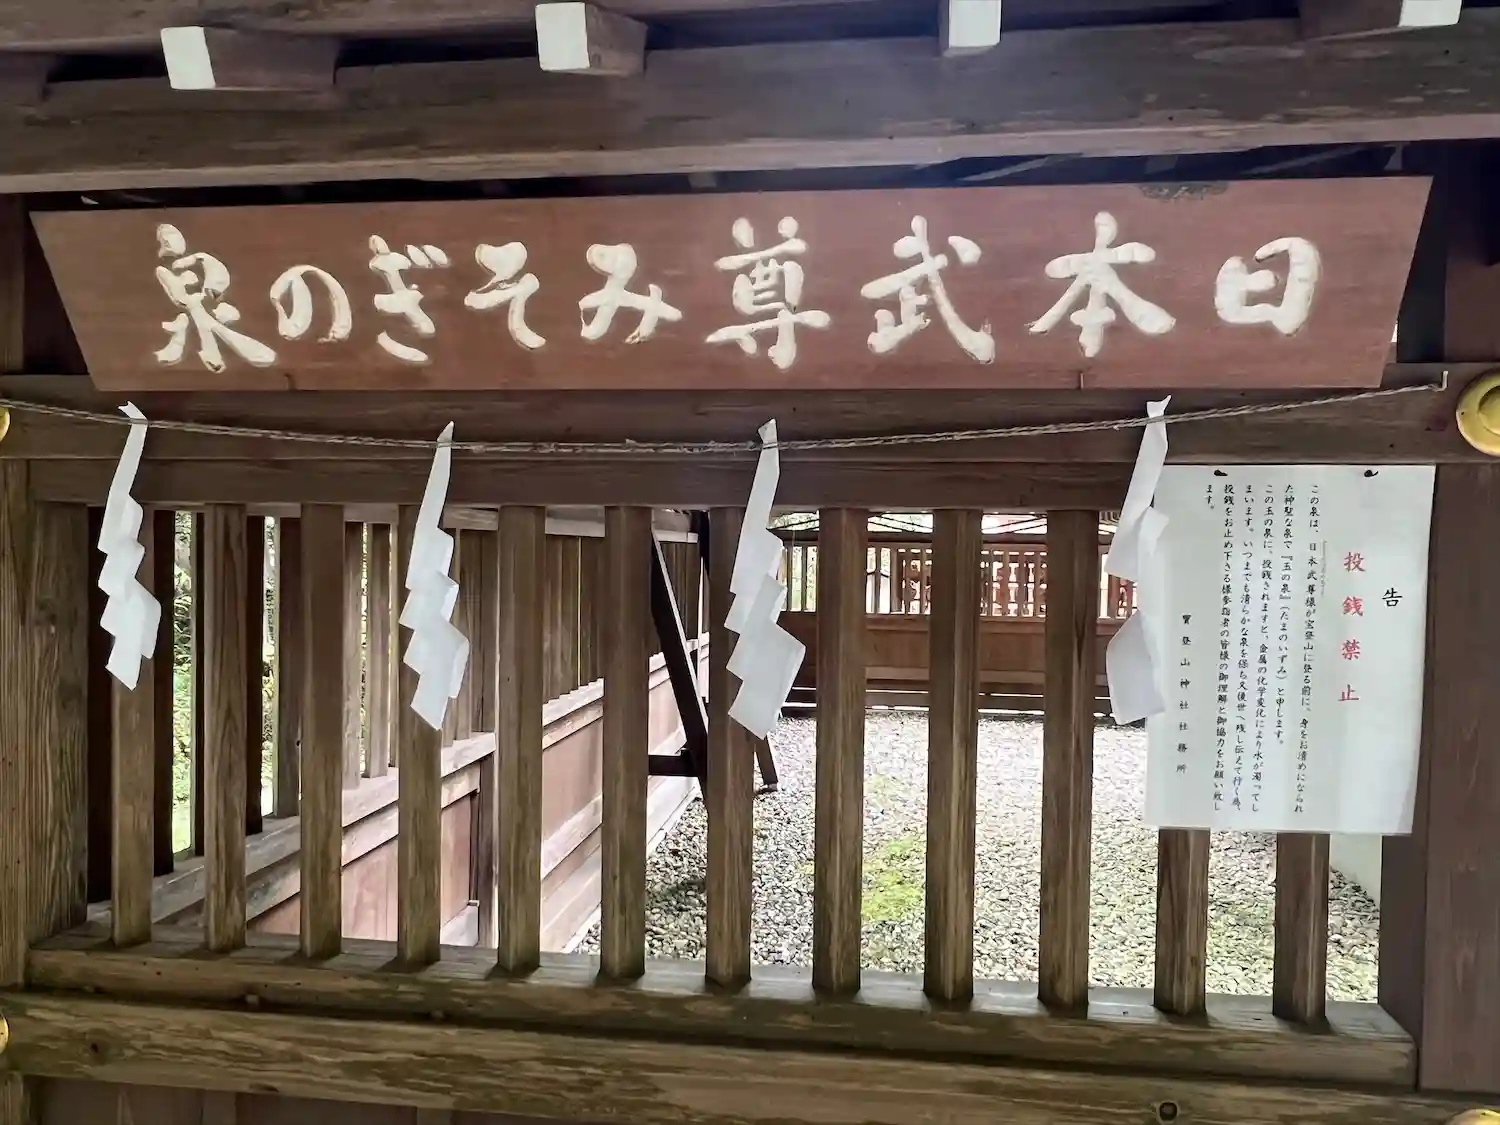 日本武尊みそぎの泉
告
投銭禁止
この泉は、日本武尊様が宝登山に登る前に、身をお清めになられ
た神聖な泉で『玉の泉』(たまのいずみ)と申します。
この玉の泉に、投銭されますと、金属の化学変化により水が濁ってし
まいます。いつまでも清らかな泉を保ち又後世へ残し伝えて行く為、
投銭をお止め下さる様参詣者の皆様の御理解と御協力をお願い致し
ます。
寳登山神社社務所